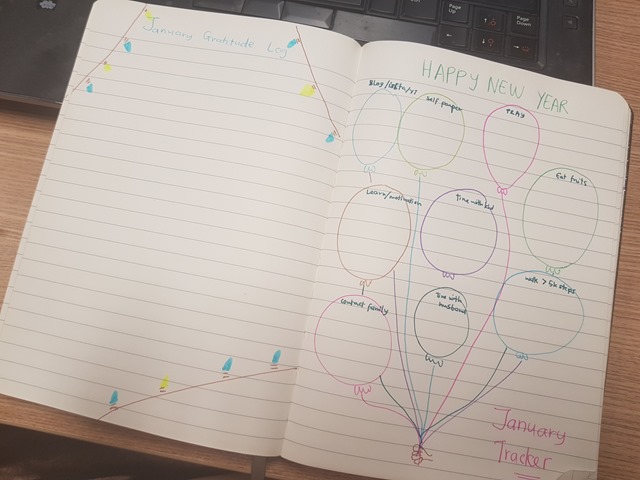 January Gratitude Log
HAPPY NEW YEAR
Blog/
self pamper
PRAY
Eat fruits
Learn/motivation
Time with
walk > 5k steps
contact family
Time with
husband
January
Tracker
Page
Up
Page
Down